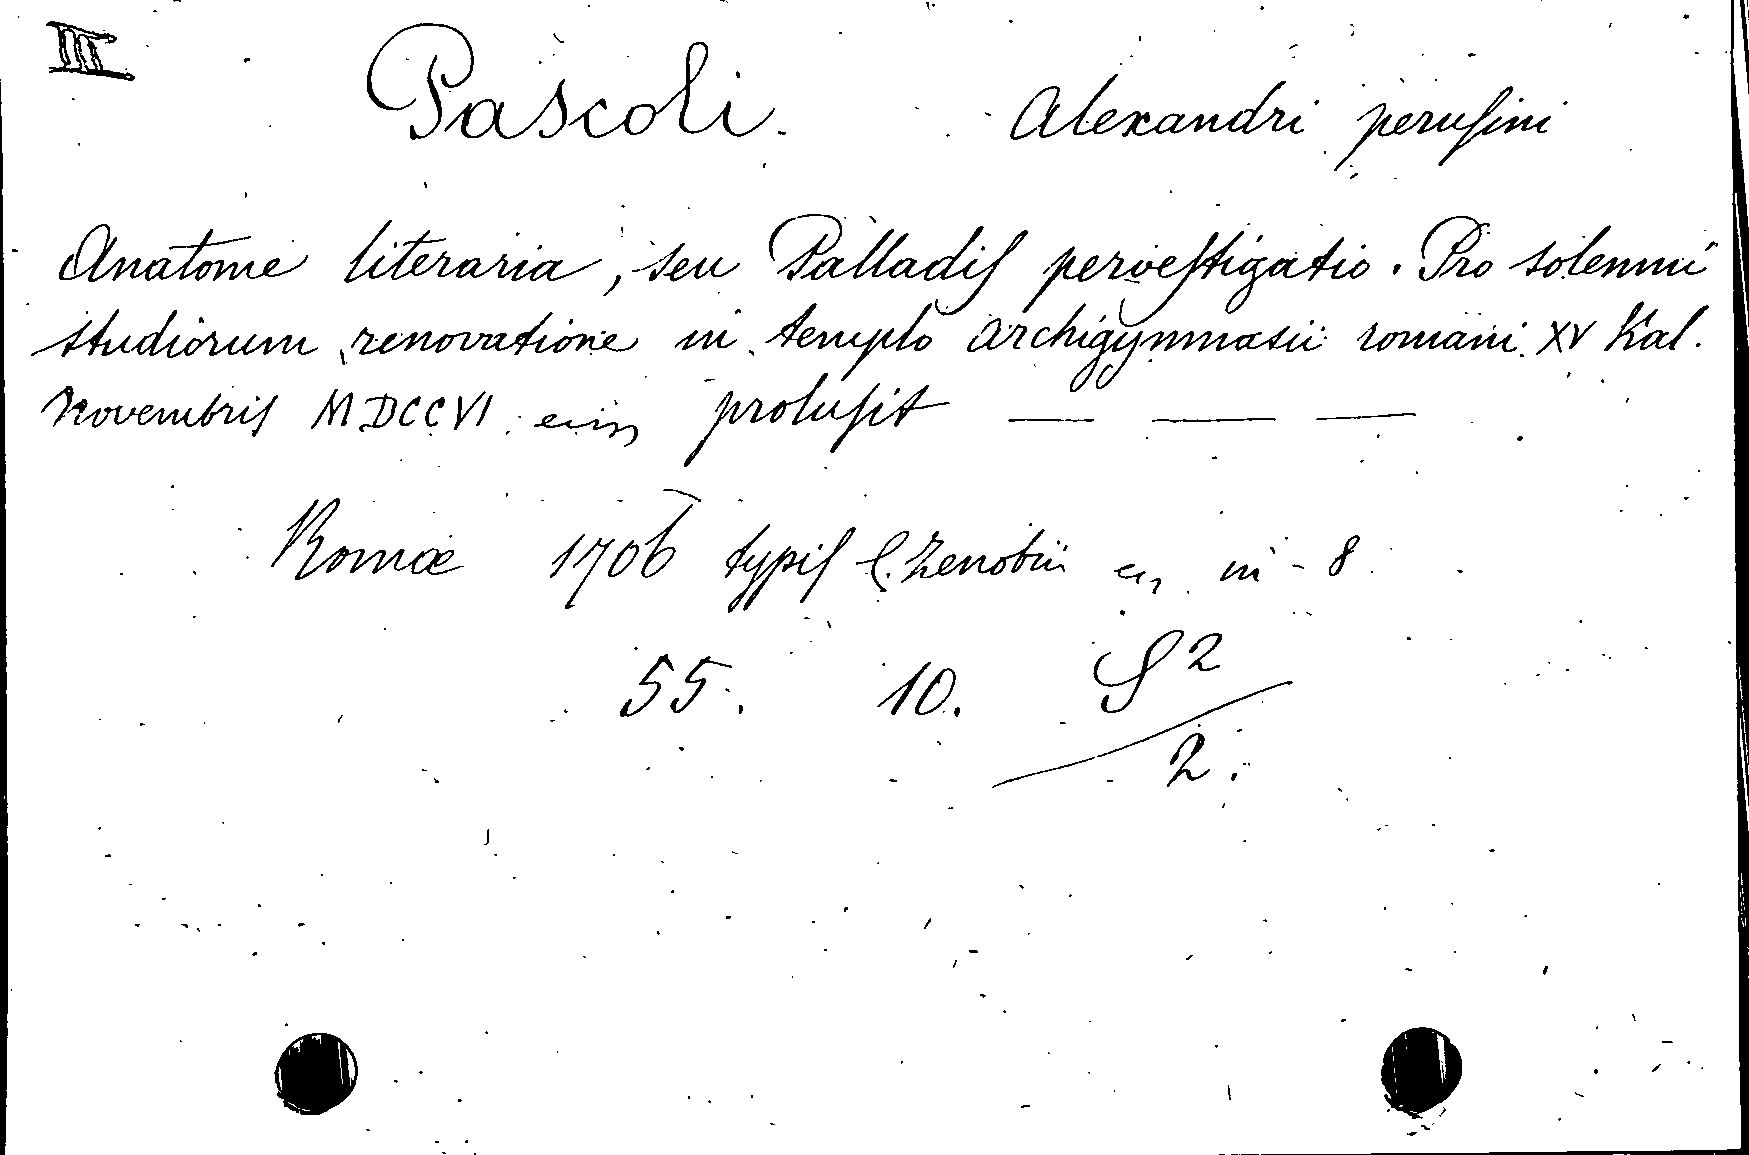 III
Pascoli. Alexandri peruſini
Anatome literaria, seu Palladiſ perveſtigatio. Pro solemni
studiorum renovatione in templo archigymnasii romani XV Kal.
Novembriſ MDCCVI proluſit — — —
Romæ 1706 typiſ Zenobii in-8
55. 10. S 2
2.